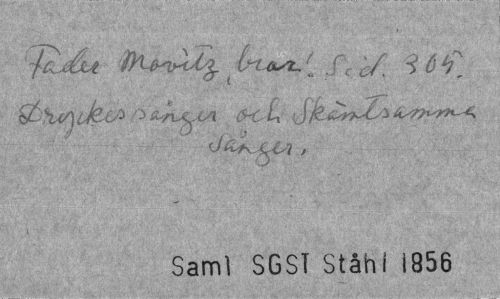 Fader Movitz, bror! Sid. 305.
Dryckessånger och Skämtsamma
Sånger.
Saml SGST Ståhl 1856